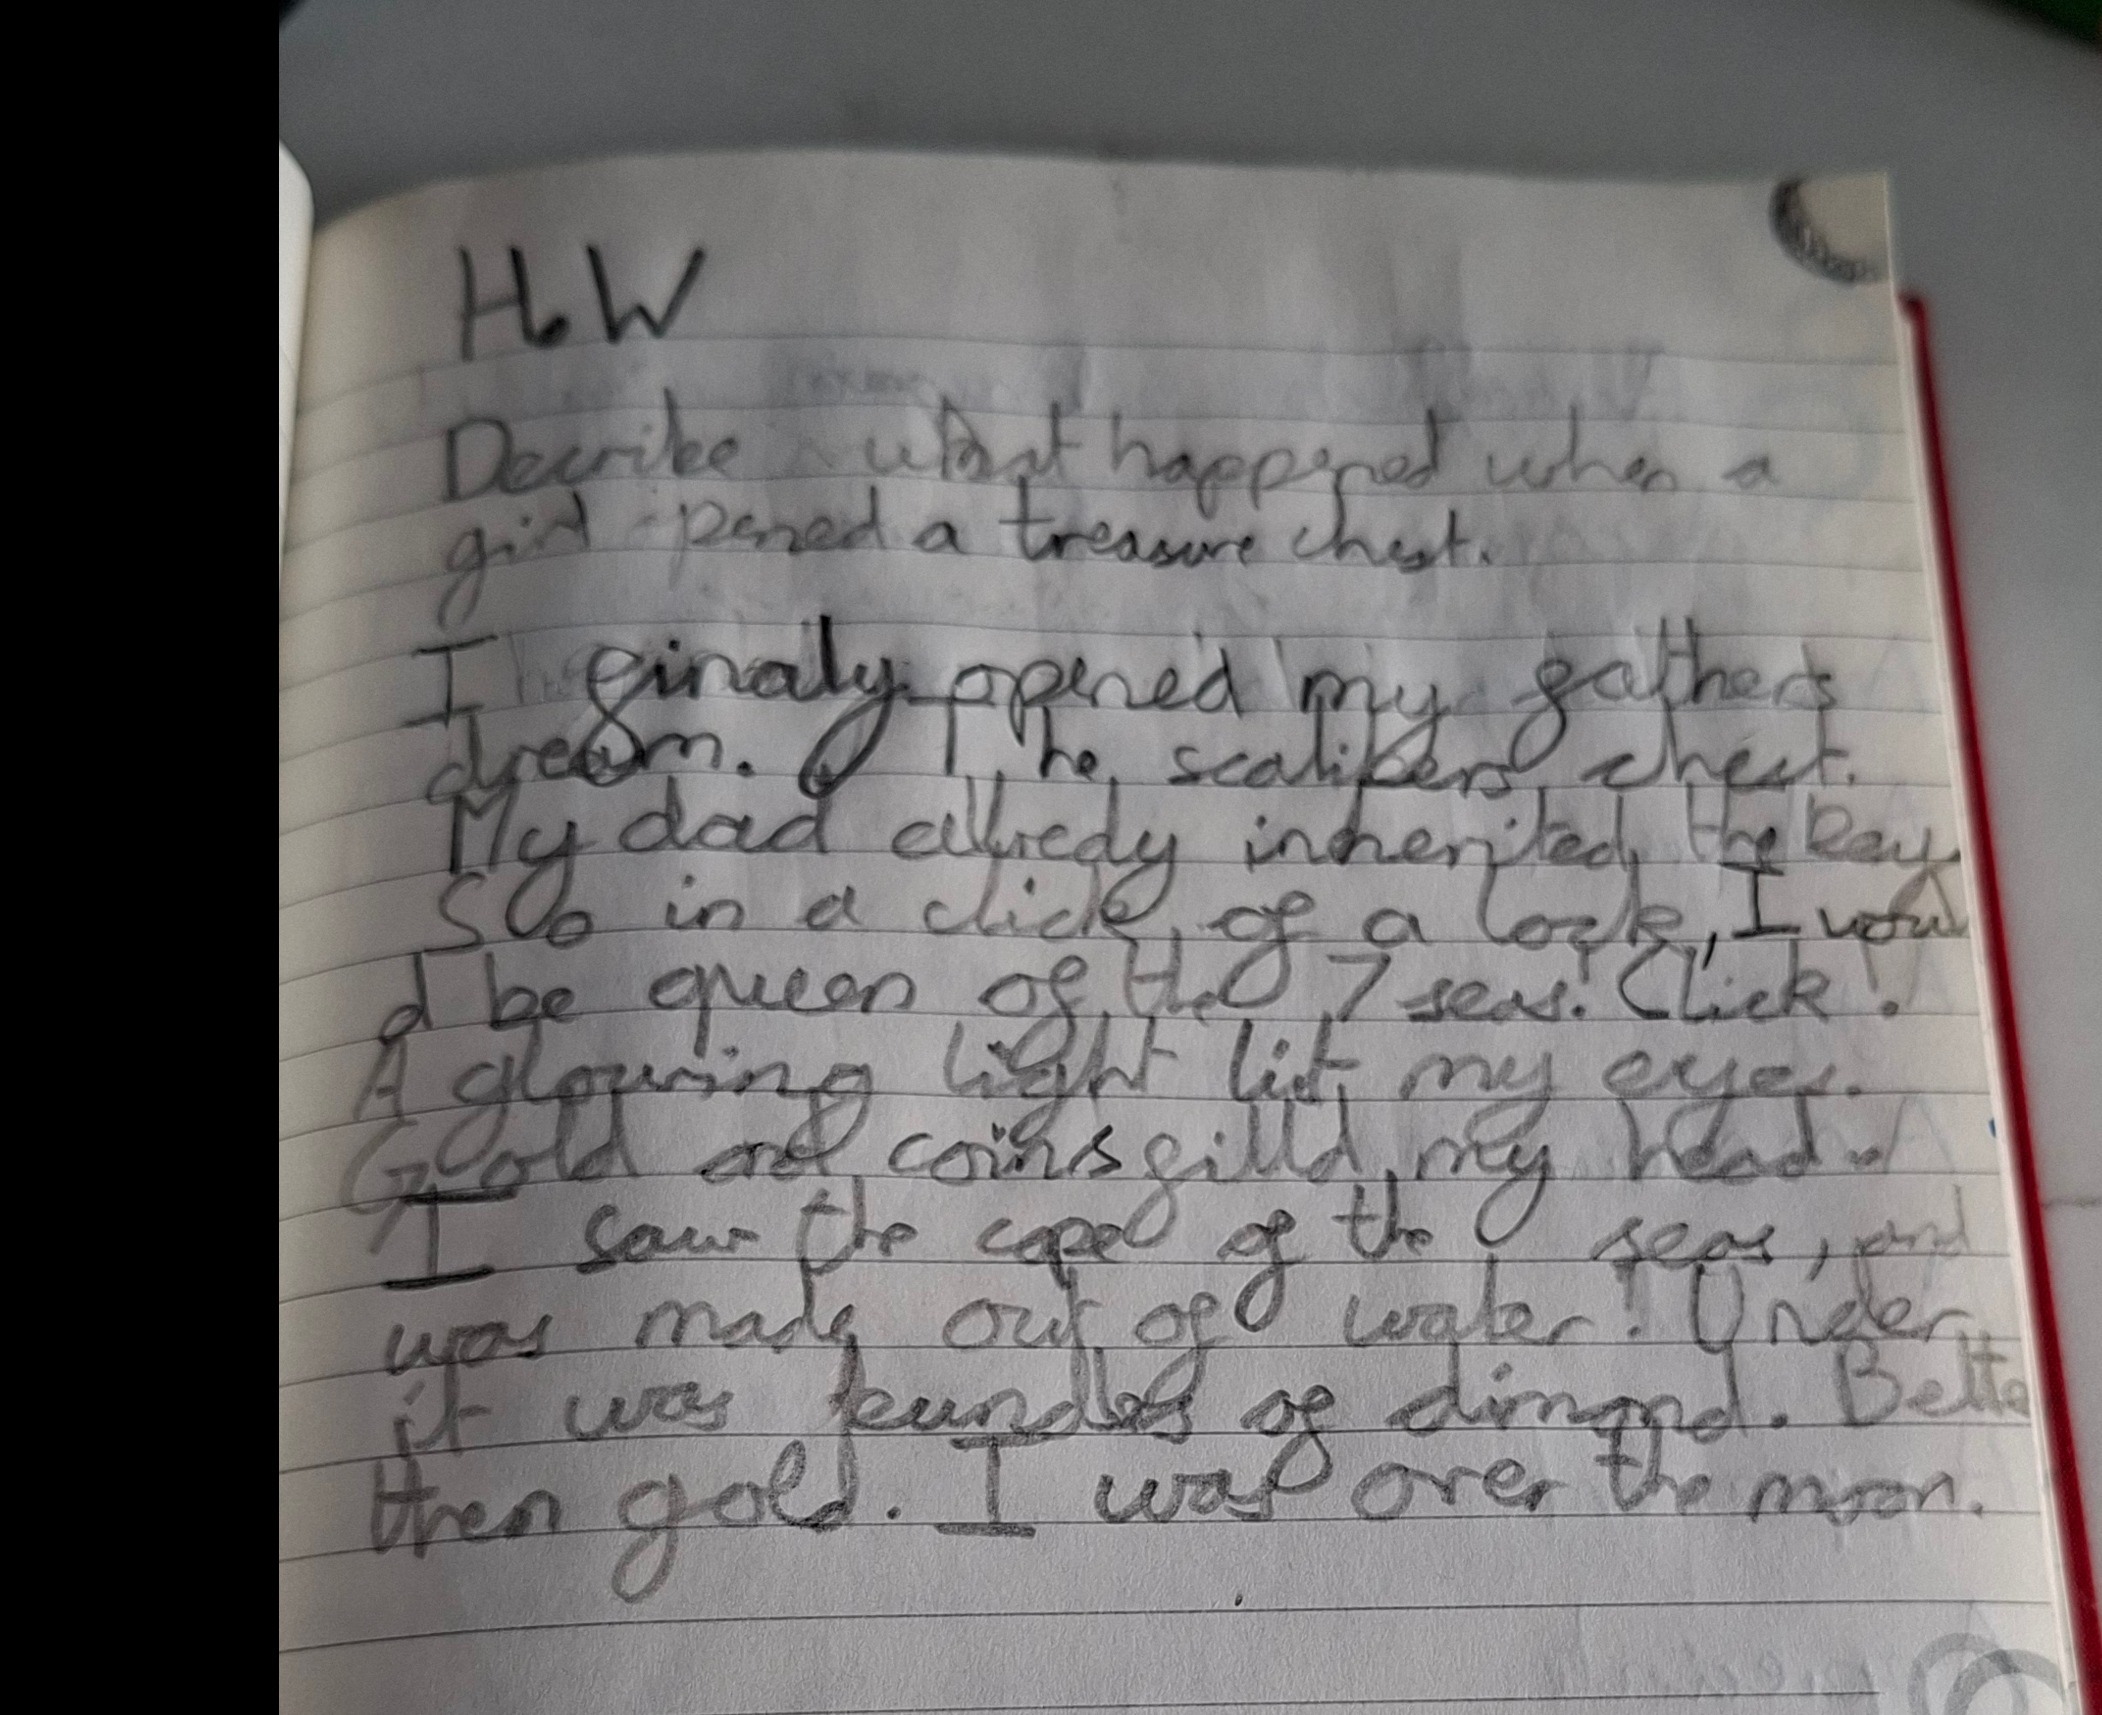 H.W
Decribe what happened when a
girl opened a treasure chest.
I finaly opened my fathers
dream. The chest.
My dad allredy inherited the key
So in a click of a lock, I woul
d be queen of the 7 seas! Click!
A glowing light lit my eyes.
Gold and coins filld my head.
I saw the cape of the seas, and
was made out of water! Under
it was bundles of dimond. Bette
then gold. I was over the moon.